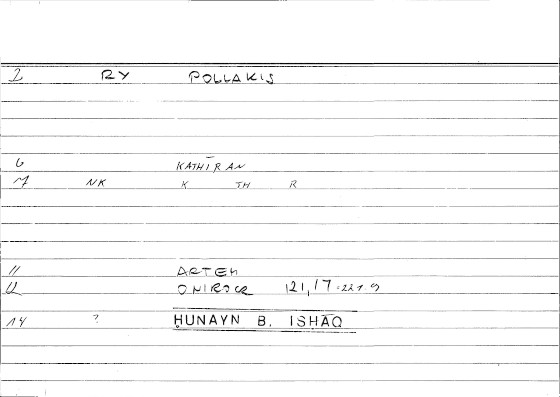 2 RY POLLAKIS
6 KATHĪRAN
7 NK K TH R
11 ARTEM
12 ONIROCR 121,17
14 ? ḤUNAYN B. ISḤĀQ